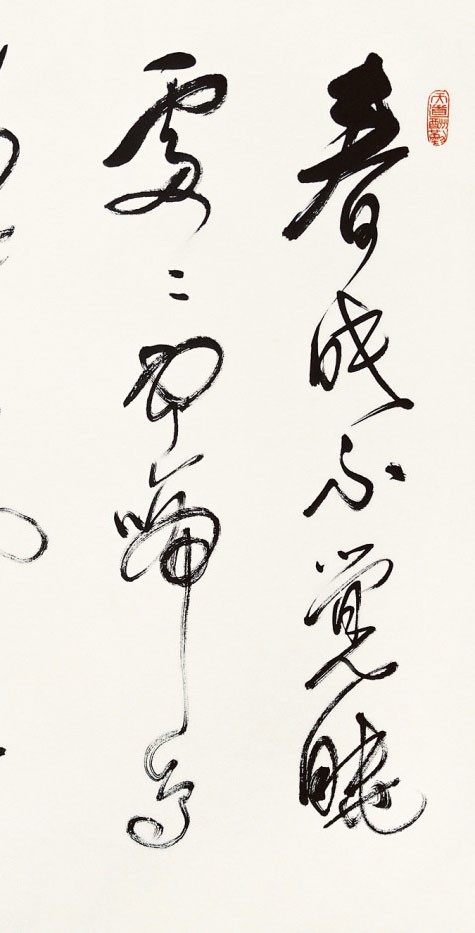 天道酬勤
春眠不覺曉
處〻聞啼鳥